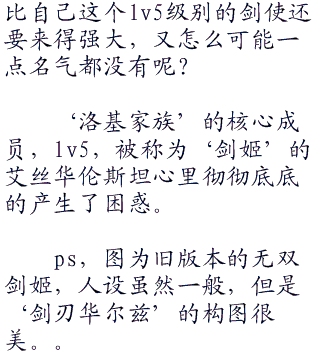 比自己这个lv5级别的剑使还
要来得强大，又怎么可能一
点名气都没有呢？
‘洛基家族’的核心成
员，lv5，被称为‘剑姬’的
艾丝华伦斯坦心里彻彻底底
的产生了困惑。
ps，图为旧版本的无双
剑姬，人设虽然一般，但是
‘剑刃华尔兹’的构图很
美。。